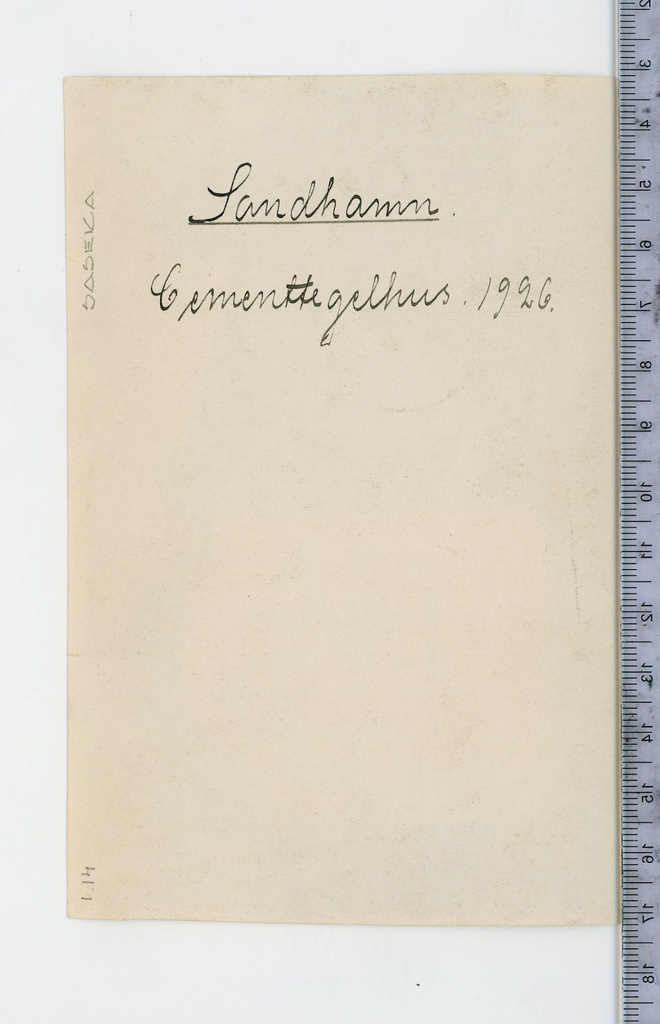 Sandhamn.
Cementtegelhus. 1926.
SASEKA
1.14
2
3
4
5
6
7
8
9
10
11
12
13
14
15
16
17
18